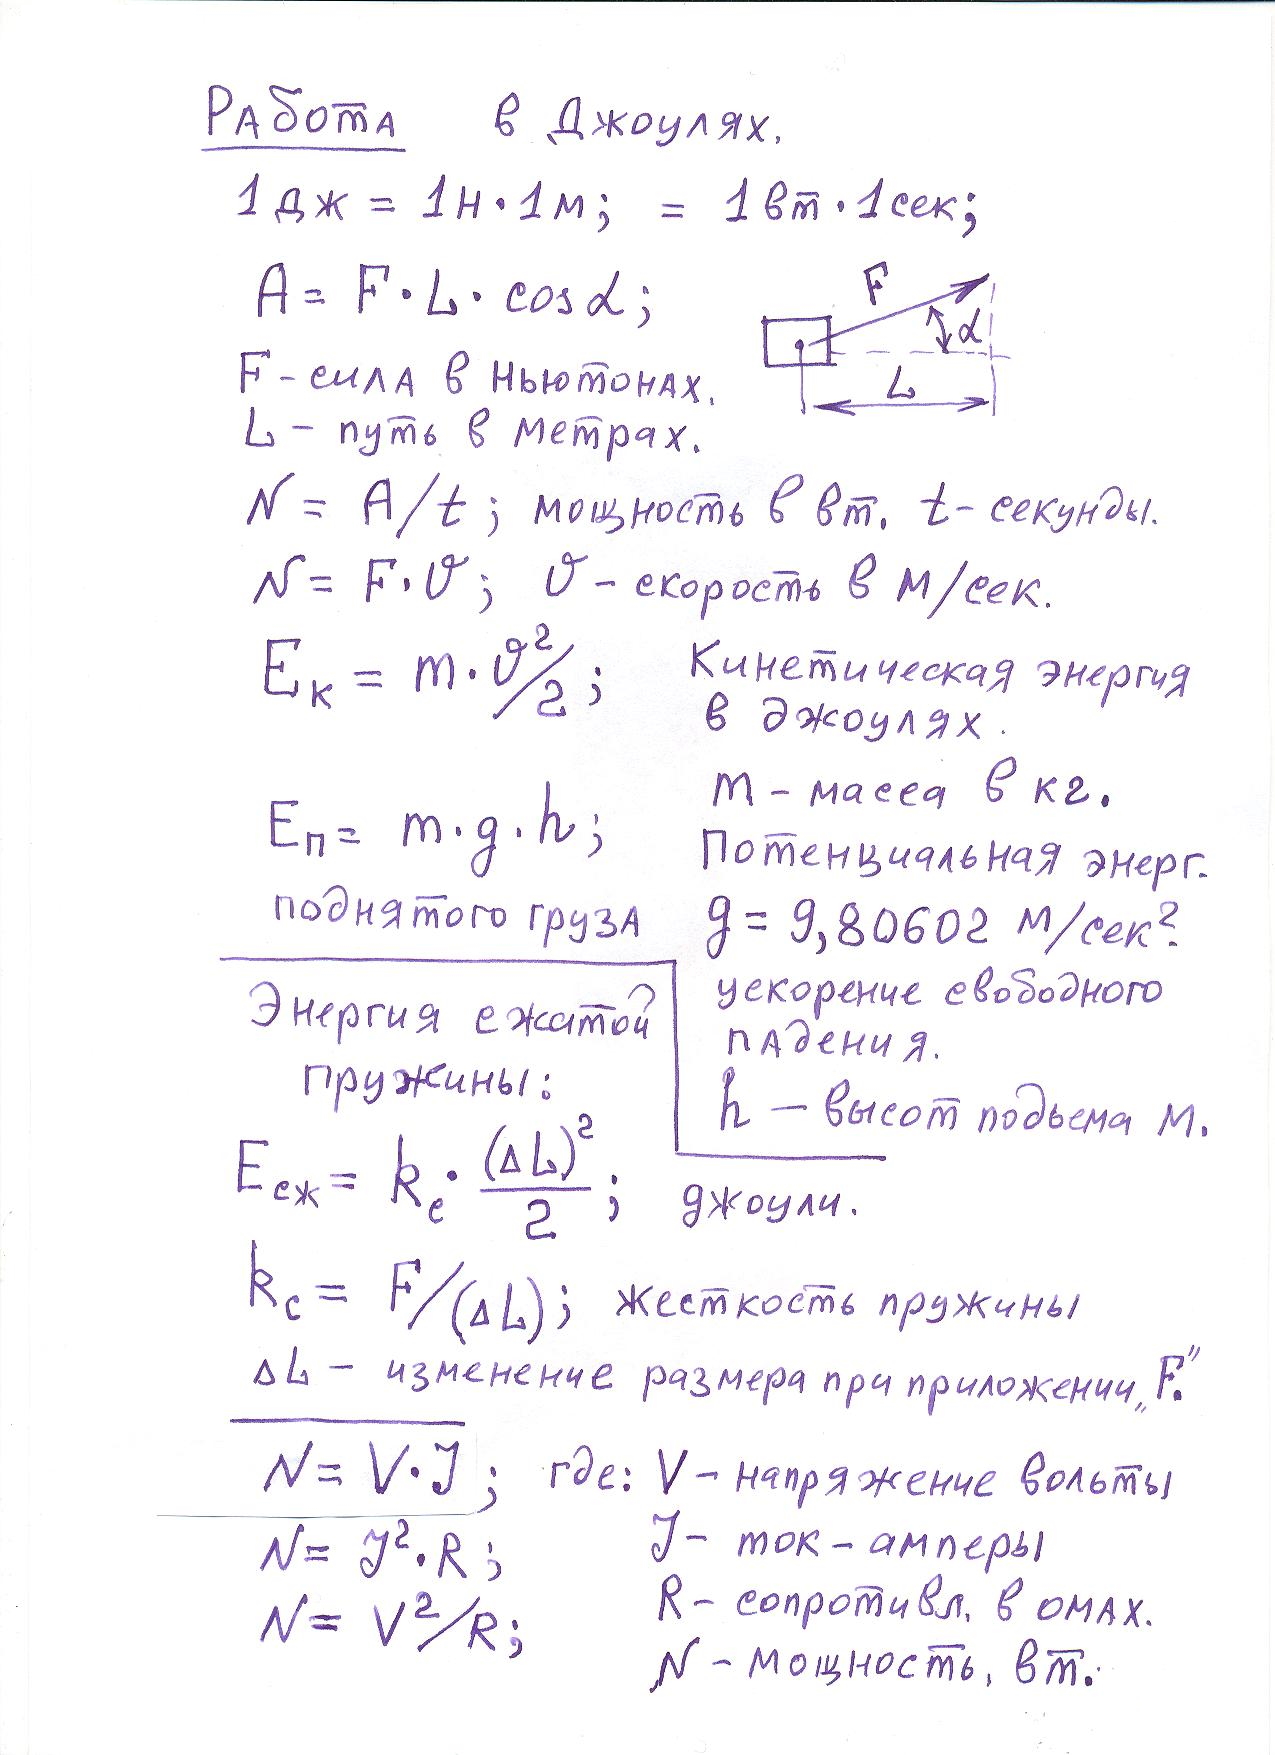 Работа в Джоулях.
1 дж = 1н · 1м; = 1вт · 1сек;
A = F · L · cosα;
F
α
L
F - сила в ньютонах.
L - путь в метрах.
N = A/t; мощность в вт. t - секунды.
N = F·𝜗; 𝜗 - скорость в м/сек.
Eк = m·𝜗²/2; Кинетическая энергия
в джоулях.
m - масса в кг.
Eп = m·g·h; Потенциальная энерг.
поднятого груза g = 9,80602 м/сек².
ускорение свободного
падения.
h - высот подьема м.
Энергия сжатой
пружины:
Eсж = kс · (ΔL)²/2; джоули.
kс = F/(ΔL); жесткость пружины
ΔL - изменение размера при приложении „F.”
N = V·J; где: V - напряжение вольты
N = J²·R; J - ток - амперы
N = V²/R; R - сопротивл. в омах.
N - мощность, вт.